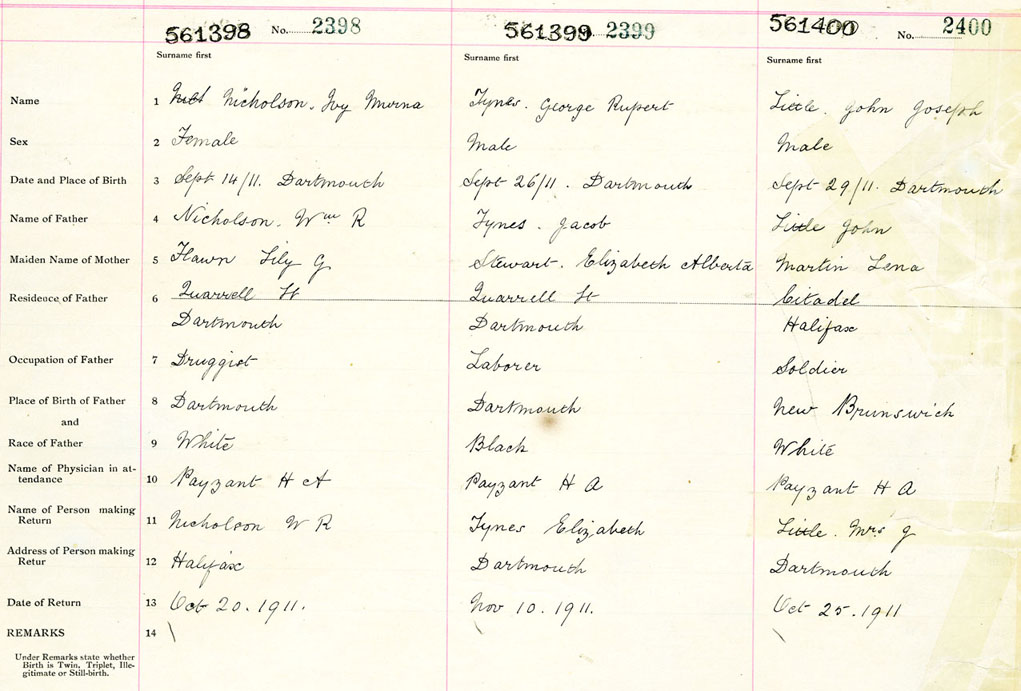 561398 No. 2398 561399 2399 561400 No. 2400
Surname first Surname first Surname first
Name 1 Nicholson. Ivy Murna Tynes. George Rupert Little. John Joseph
Sex 2 Female Male Male
Date and Place of Birth 3 Sept 14/11. Dartmouth Sept 26/11. Dartmouth Sept 29/11. Dartmouth
Name of Father 4 Nicholson. Wm R Tynes. Jacob Little John
Maiden Name of Mother 5 Hawn Lily G Stewart. Elizabeth Alberta Martin Lena
Residence of Father 6 Quarrell St Quarrell St Citadel
Dartmouth Dartmouth Halifax
Occupation of Father 7 Druggist Laborer Soldier
Place of Birth of Father 8 Dartmouth Dartmouth New Brunswick
and
Race of Father 9 White Black White
Name of Physician in at-
tendance 10 Payzant H A Payzant H A Payzant H A
Name of Person making
Return 11 Nicholson W R Tynes Elizabeth Little. Mrs J
Address of Person making
Retur 12 Halifax Dartmouth Dartmouth
Date of Return 13 Oct 20. 1911. Nov 10. 1911. Oct 25. 1911
REMARKS 14 \ \ \
Under Remarks state whether
Birth is Twin, Triplet, Ille-
gitimate or Still-birth.